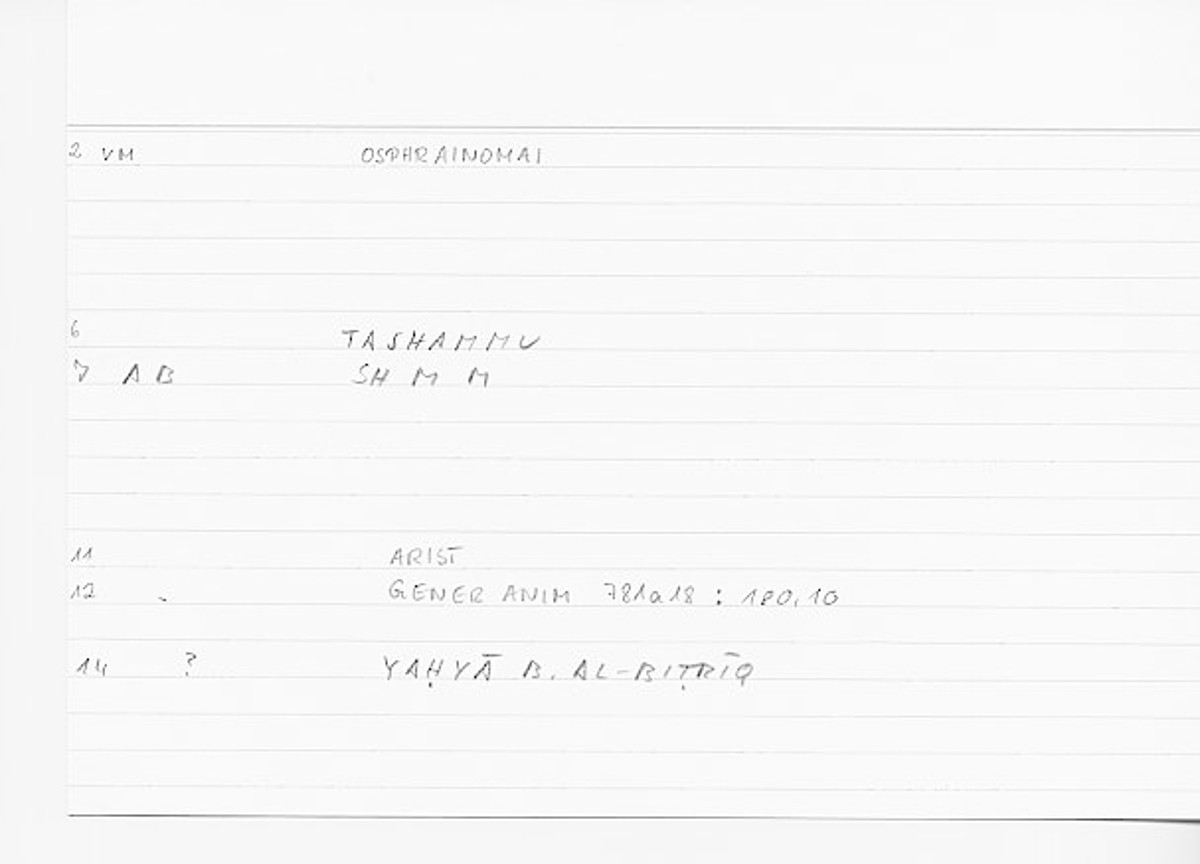 2 VM OSPHRAINOMAI
6 TASHAMMU
7 AB SH M M
11 ARIST
12 GENER ANIM 781a18 : 180,10
14 ? YAḤYĀ B. AL-BIṬRĪQ